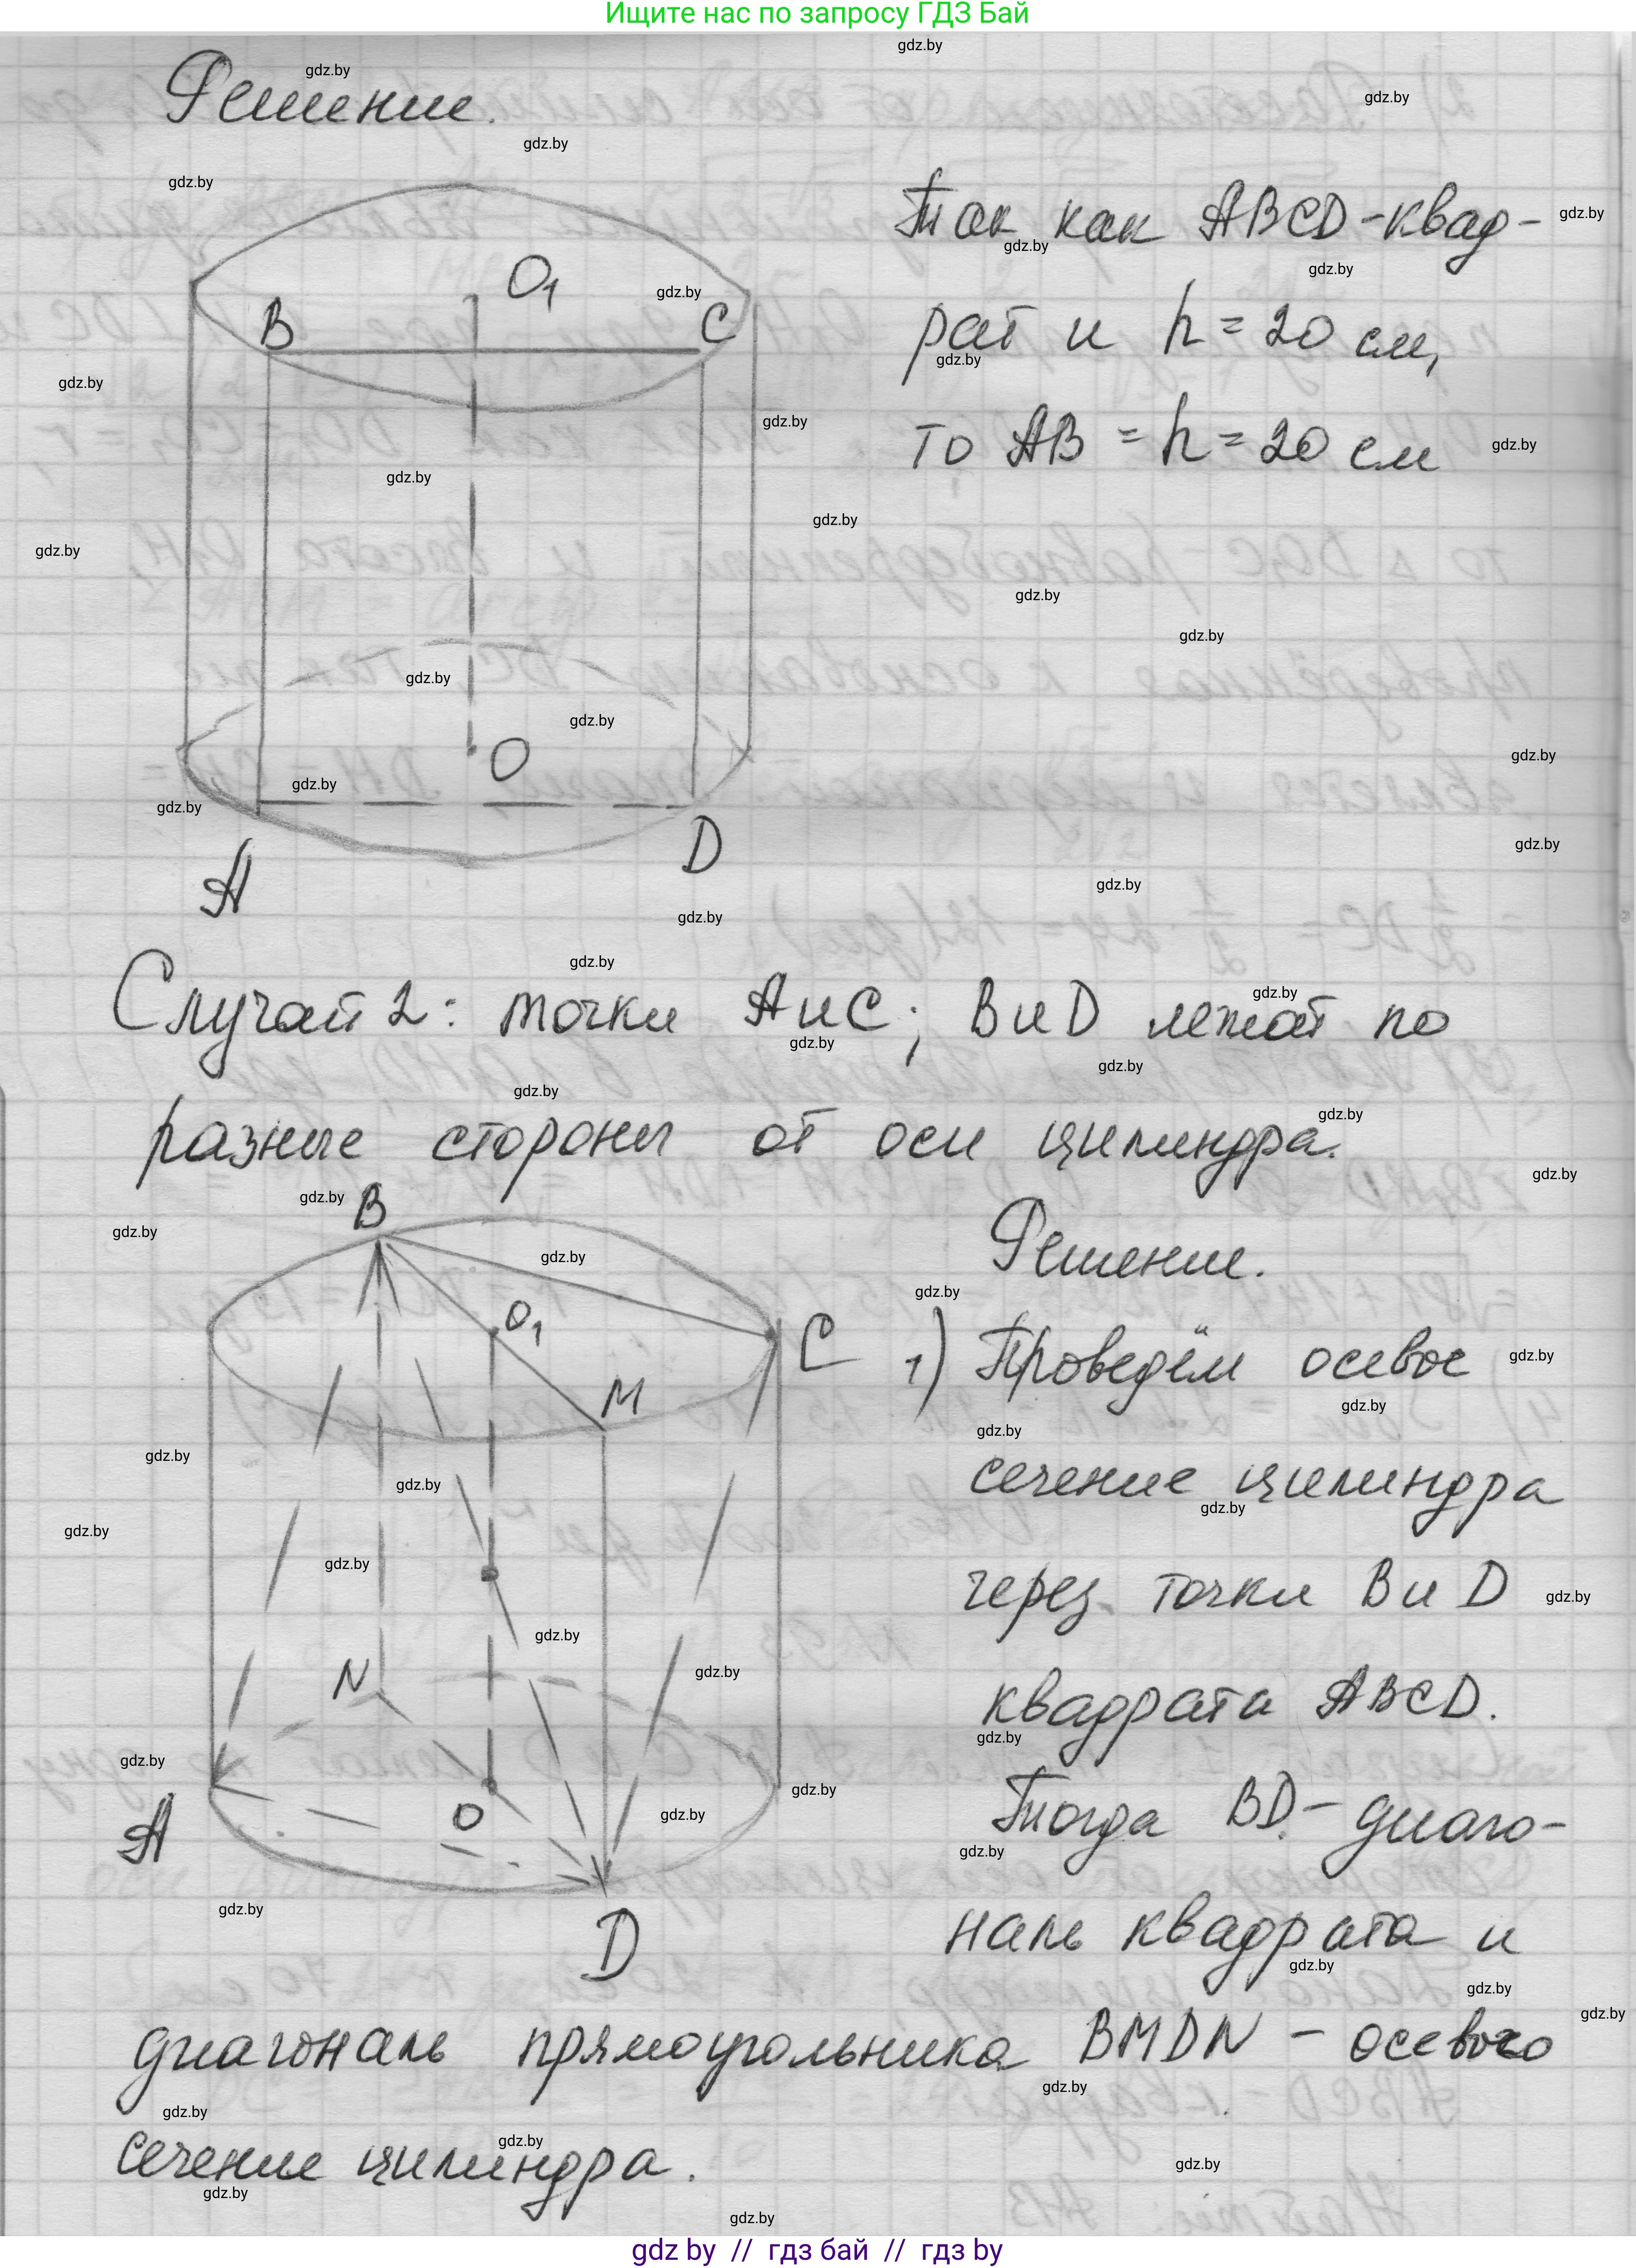 Ищите нас по запросу ГДЗ Бай
Решение.
Так как ABCD-квад-
рат и h = 20 см,
то AB = h = 20 см
B
O₁
C
O
A
D
Случай 2: точки A и C; B и D лежат по
разные стороны от оси цилиндра.
B
O₁
C
M
N
A
O
D
Решение.
1) Проведём осевое
сечение цилиндра
через точки B и D
квадрата ABCD.
Тогда BD - диаго-
наль квадрата и
диагональ прямоугольника BMDN - осевого
сечение цилиндра.
gdz by // гдз бай // гдз by